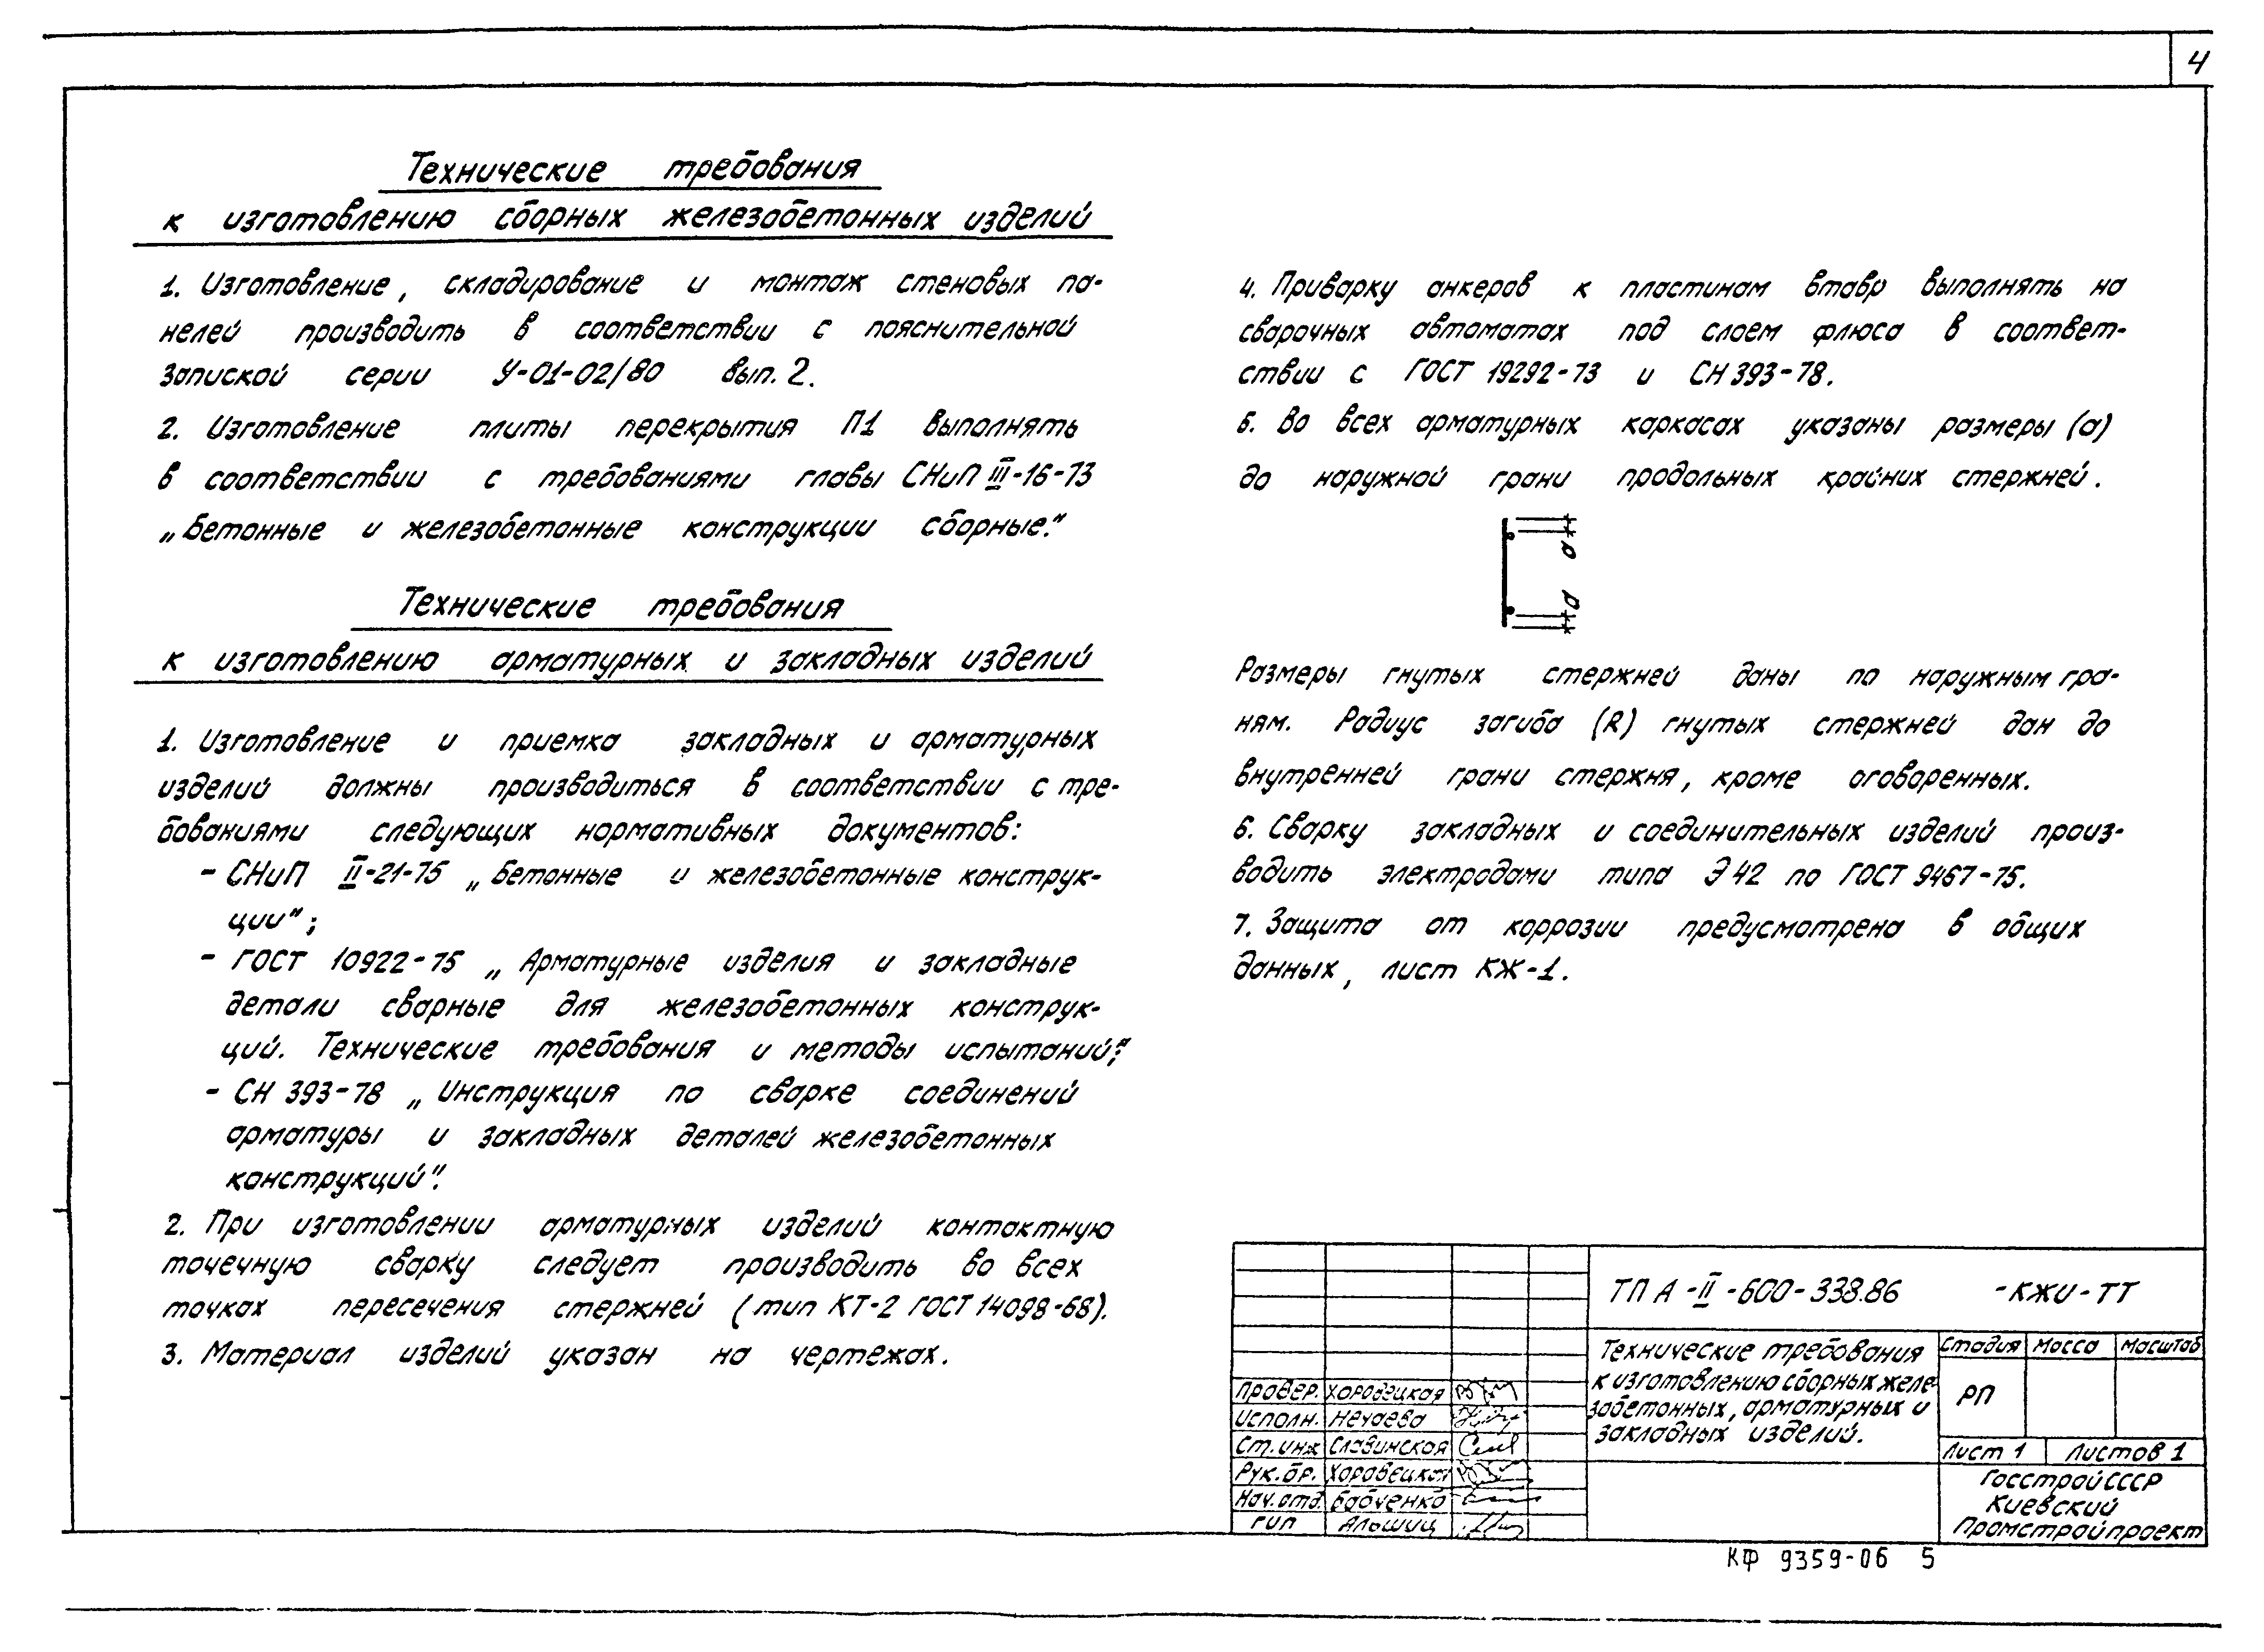 4
Технические требования
к изготовлению сборных железобетонных изделий
1. Изготовление, складирование и монтаж стеновых па-
нелей производить в соответствии с пояснительной
запиской серии У-01-02/80 вып. 2.
2. Изготовление плиты перекрытия П1 выполнять
в соответствии с требованиями главы СНиП III-16-73
„Бетонные и железобетонные конструкции сборные."
Технические требования
к изготовлению арматурных и закладных изделий
1. Изготовление и приемка закладных и арматурных
изделий должны производиться в соответствии с тре-
бованиями следующих нормативных документов:
- СНиП II-21-75 „Бетонные и железобетонные конструк-
ции";
- ГОСТ 10922-75 „Арматурные изделия и закладные
детали сварные для железобетонных конструк-
ций. Технические требования и методы испытаний";
- СН 393-78 „Инструкция по сварке соединений
арматуры и закладных деталей железобетонных
конструкций".
2. При изготовлении арматурных изделий контактную
точечную сварку следует производить во всех
точках пересечения стержней (тип КТ-2 ГОСТ 14098-68).
3. Материал изделий указан на чертежах.
4. Приварку анкеров к пластинам втавр выполнять на
сварочных автоматах под слоем флюса в соответ-
ствии с ГОСТ 19292-73 и СН 393-78.
5. Во всех арматурных каркасах указаны размеры (а)
до наружной грани продольных крайних стержней.
а
а
Размеры гнутых стержней даны по наружным гра-
ням. Радиус загиба (R) гнутых стержней дан до
внутренней грани стержня, кроме оговоренных.
6. Сварку закладных и соединительных изделий произ-
водить электродами типа Э42 по ГОСТ 9467-75.
7. Защита от коррозии предусмотрена в общих
данных, лист КЖ-1.
ТП А-II-600-338.86 -КЖИ-ТТ
Технические требования
к изготовлению сборных желе-
зобетонных, арматурных и
закладных изделий.
Стадия Масса Масштаб
РП
Лист 1 Листов 1
Госстрой СССР
Киевский
Промстройпроект
Провер. Хоровецкая
Исполн. Нечаева
Ст. инж Славинская
Рук. бр. Хоровецкая
Нач. отд. Бабченко
ГИП Альшиц
КФ 9359-06 5